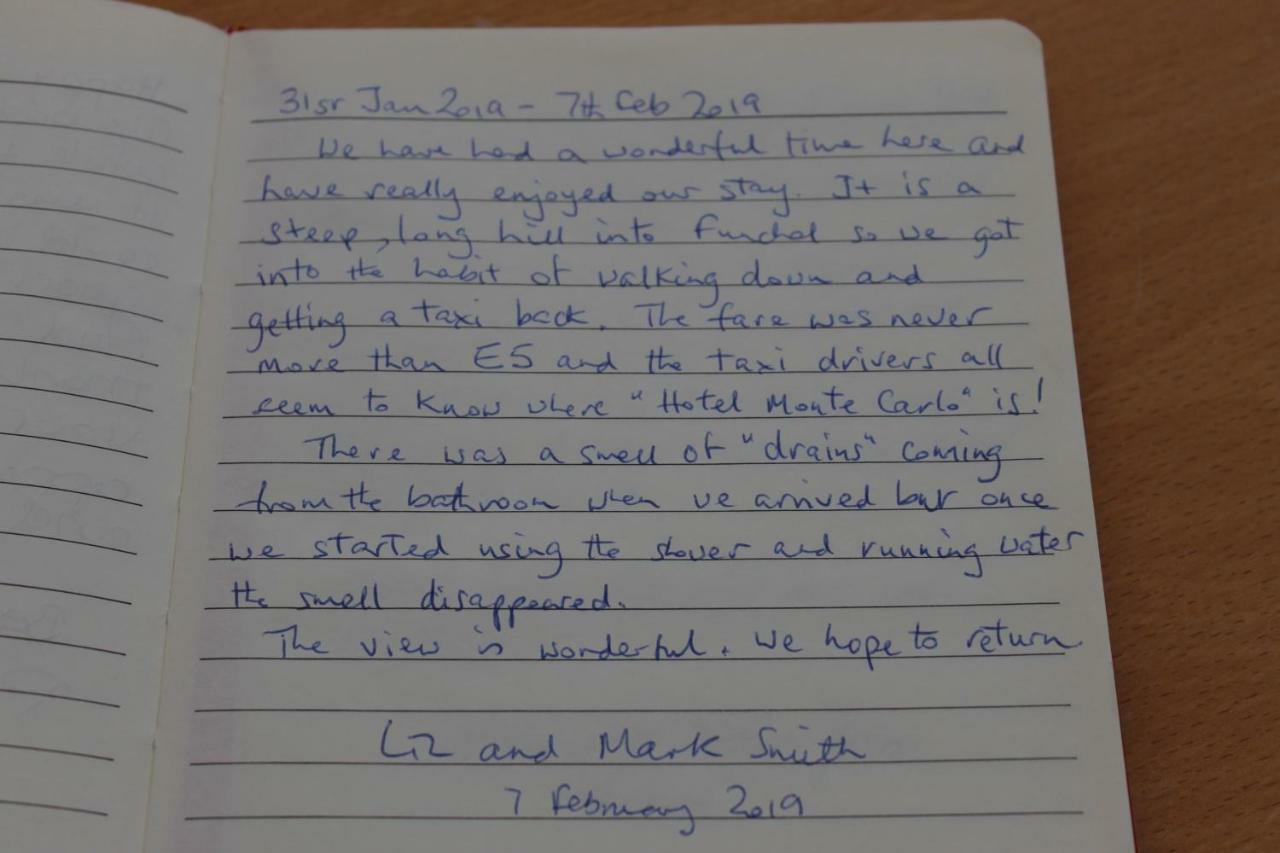 31st Jan 2019 - 7th Feb 2019
We have had a wonderful time here and
have really enjoyed our stay. It is a
steep, long hill into Funchal so we got
into the habit of walking down and
getting a taxi back. The fare was never
more than €5 and the taxi drivers all
seem to know where "Hotel Monte Carlo" is!
There was a smell of "drains" coming
from the bathroom when we arrived but once
we started using the shower and running water
the smell disappeared.
The view is wonderful. We hope to return
Liz and Mark Smith
7 February 2019